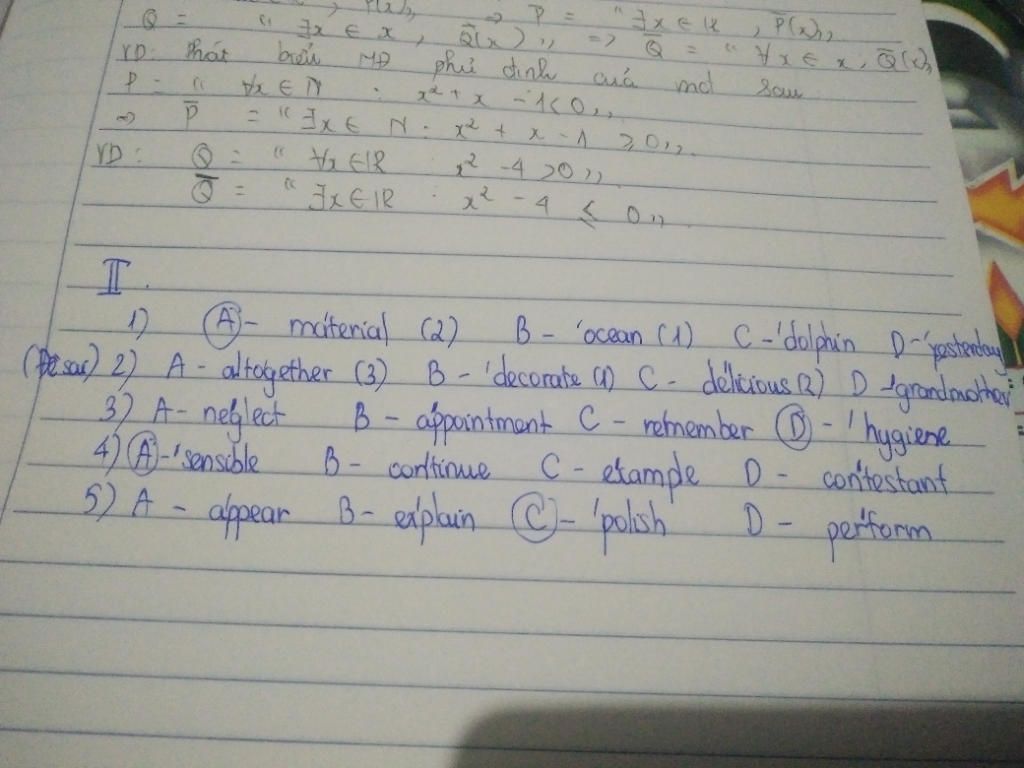 P(x),, => P̄ = "∃x ∈ IR, P̄(x),,
Q = "∃x ∈ x, Q̄(x),, => Q̄ = "∀x ∈ x, Q̄(x),,
VD: Phát biểu MĐ phủ định của mđ sau
P = "∀x ∈ N : x² + x - 1 < 0,,
=> P̄ = "∃x ∈ N : x² + x - 1 ≥ 0,,
VD: Q = "∀x ∈ IR : x² - 4 > 0,,
Q̄ = "∃x ∈ IR : x² - 4 ≤ 0,,
II.
1) A - ma'terial (2) B - 'ocean (1) C - 'dolphin D - 'yesterday
(Đề sai) 2) A - alto'gether (3) B - 'decorate (1) C - de'licious (2) D - 'grandmother
3) A - ne'glect B - a'ppointment C - re'member D - 'hygiene
4) A - 'sensible B - con'tinue C - e'xample D - con'testant
5) A - a'ppear B - ex'plain C - 'polish D - per'form